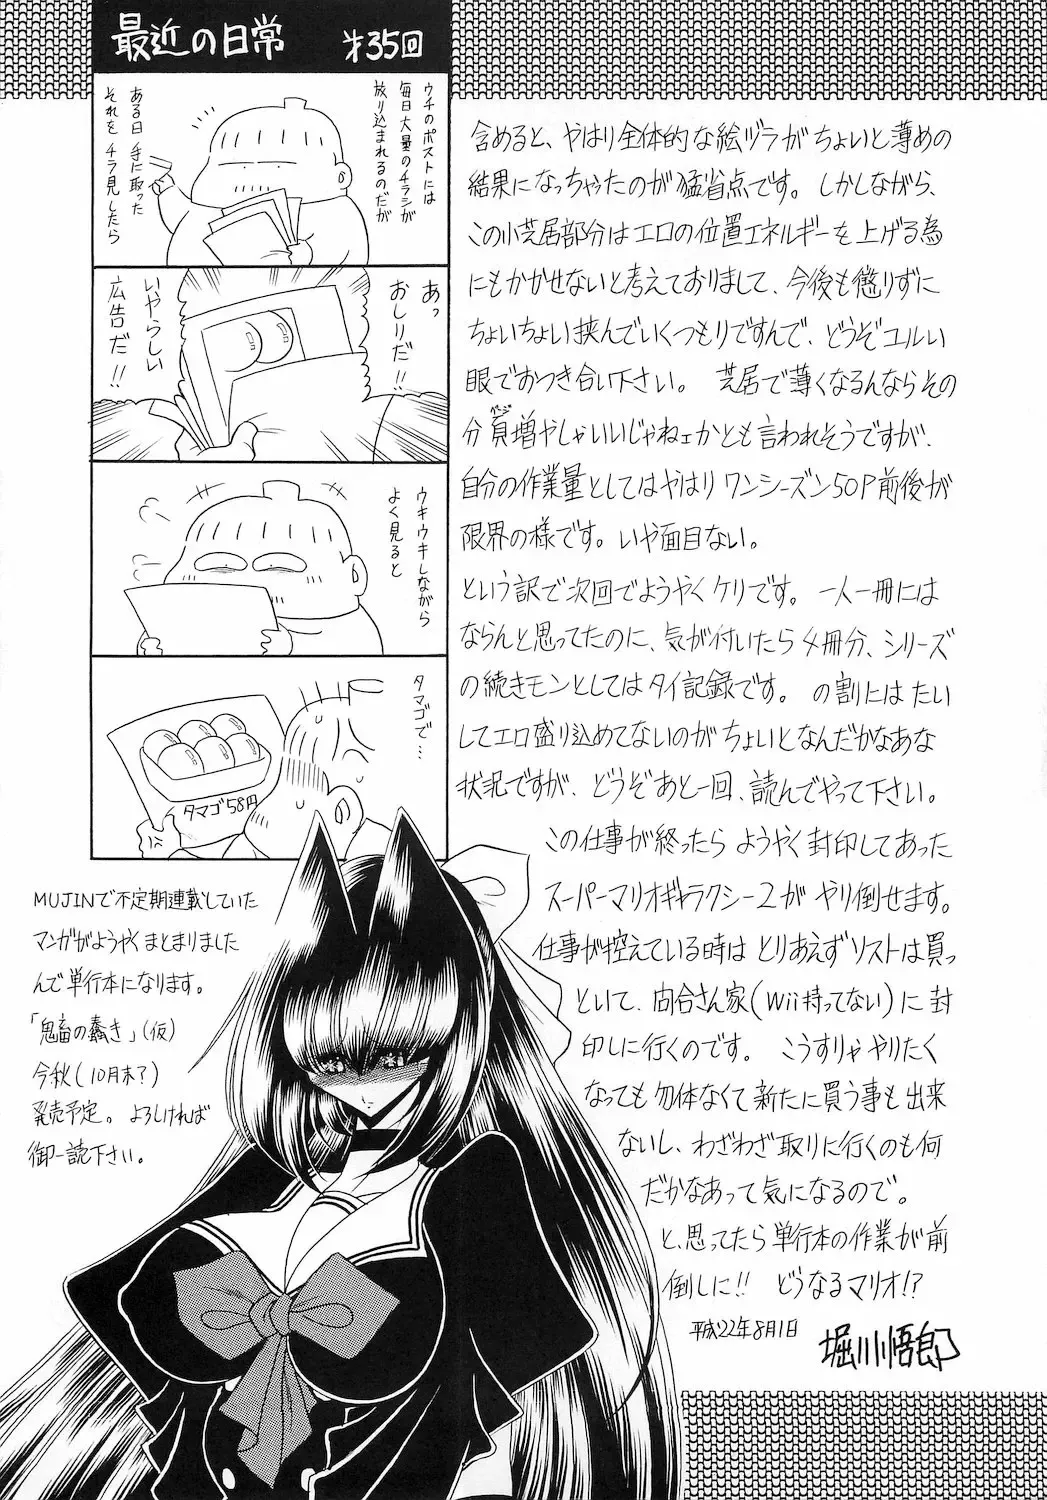 最近の日常 第35回
ウチのポストには
毎日大量のチラシが
放り込まれるのだが
ある日 手に取った
それを チラ見したら
あっ
おしりだ!!
いやらしい
広告だ!!
ウキウキしながら
よく見ると
タマゴで…
タマゴ58円
含めると、やはり全体的な絵ヅラがちょいと薄めの
結果になっちゃったのが猛省点です。しかしながら、
この小芝居部分はエロの位置エネルギーを上げる為
にもかかせないと考えておりまして、今後も懲りずに
ちょいちょい挟んでいくつもりですんで、どうぞユルい
眼でおつき合い下さい。芝居で薄くなるんならその
分頁増やしゃいいじゃねェかとも言われそうですが、
自分の作業量としてはやはりワンシーズン50P前後が
限界の様です。いや面目ない。
という訳で次回でようやくケリです。一人一冊には
ならんと思ってたのに、気が付いたら4冊分、シリーズ
の続きモンとしてはタイ記録です。の割にはたい
してエロ盛り込めてないのがちょいとなんだかなあな
状況ですが、どうぞあと一回、読んでやって下さい。
この仕事が終ったらようやく封印してあった
スーパーマリオギャラクシー2がやり倒せます。
仕事が控えている時はとりあえずソフトは買っ
といて、向合さん家(Wii持ってない)に封
印しに行くのです。こうすりゃやりたく
なっても勿体なくて新たに買う事も出来
ないし、わざわざ取りに行くのも何
だかなあって気になるので。
と、思ってたら単行本の作業が前
倒しに!!どうなるマリオ!?
平成22年8月1日
堀川悟郎
MUJINで不定期連載していた
マンガがようやくまとまりました
んで単行本になります。
「鬼畜の蠢き」(仮)
今秋(10月末?)
発売予定。よろしければ
御一読下さい。